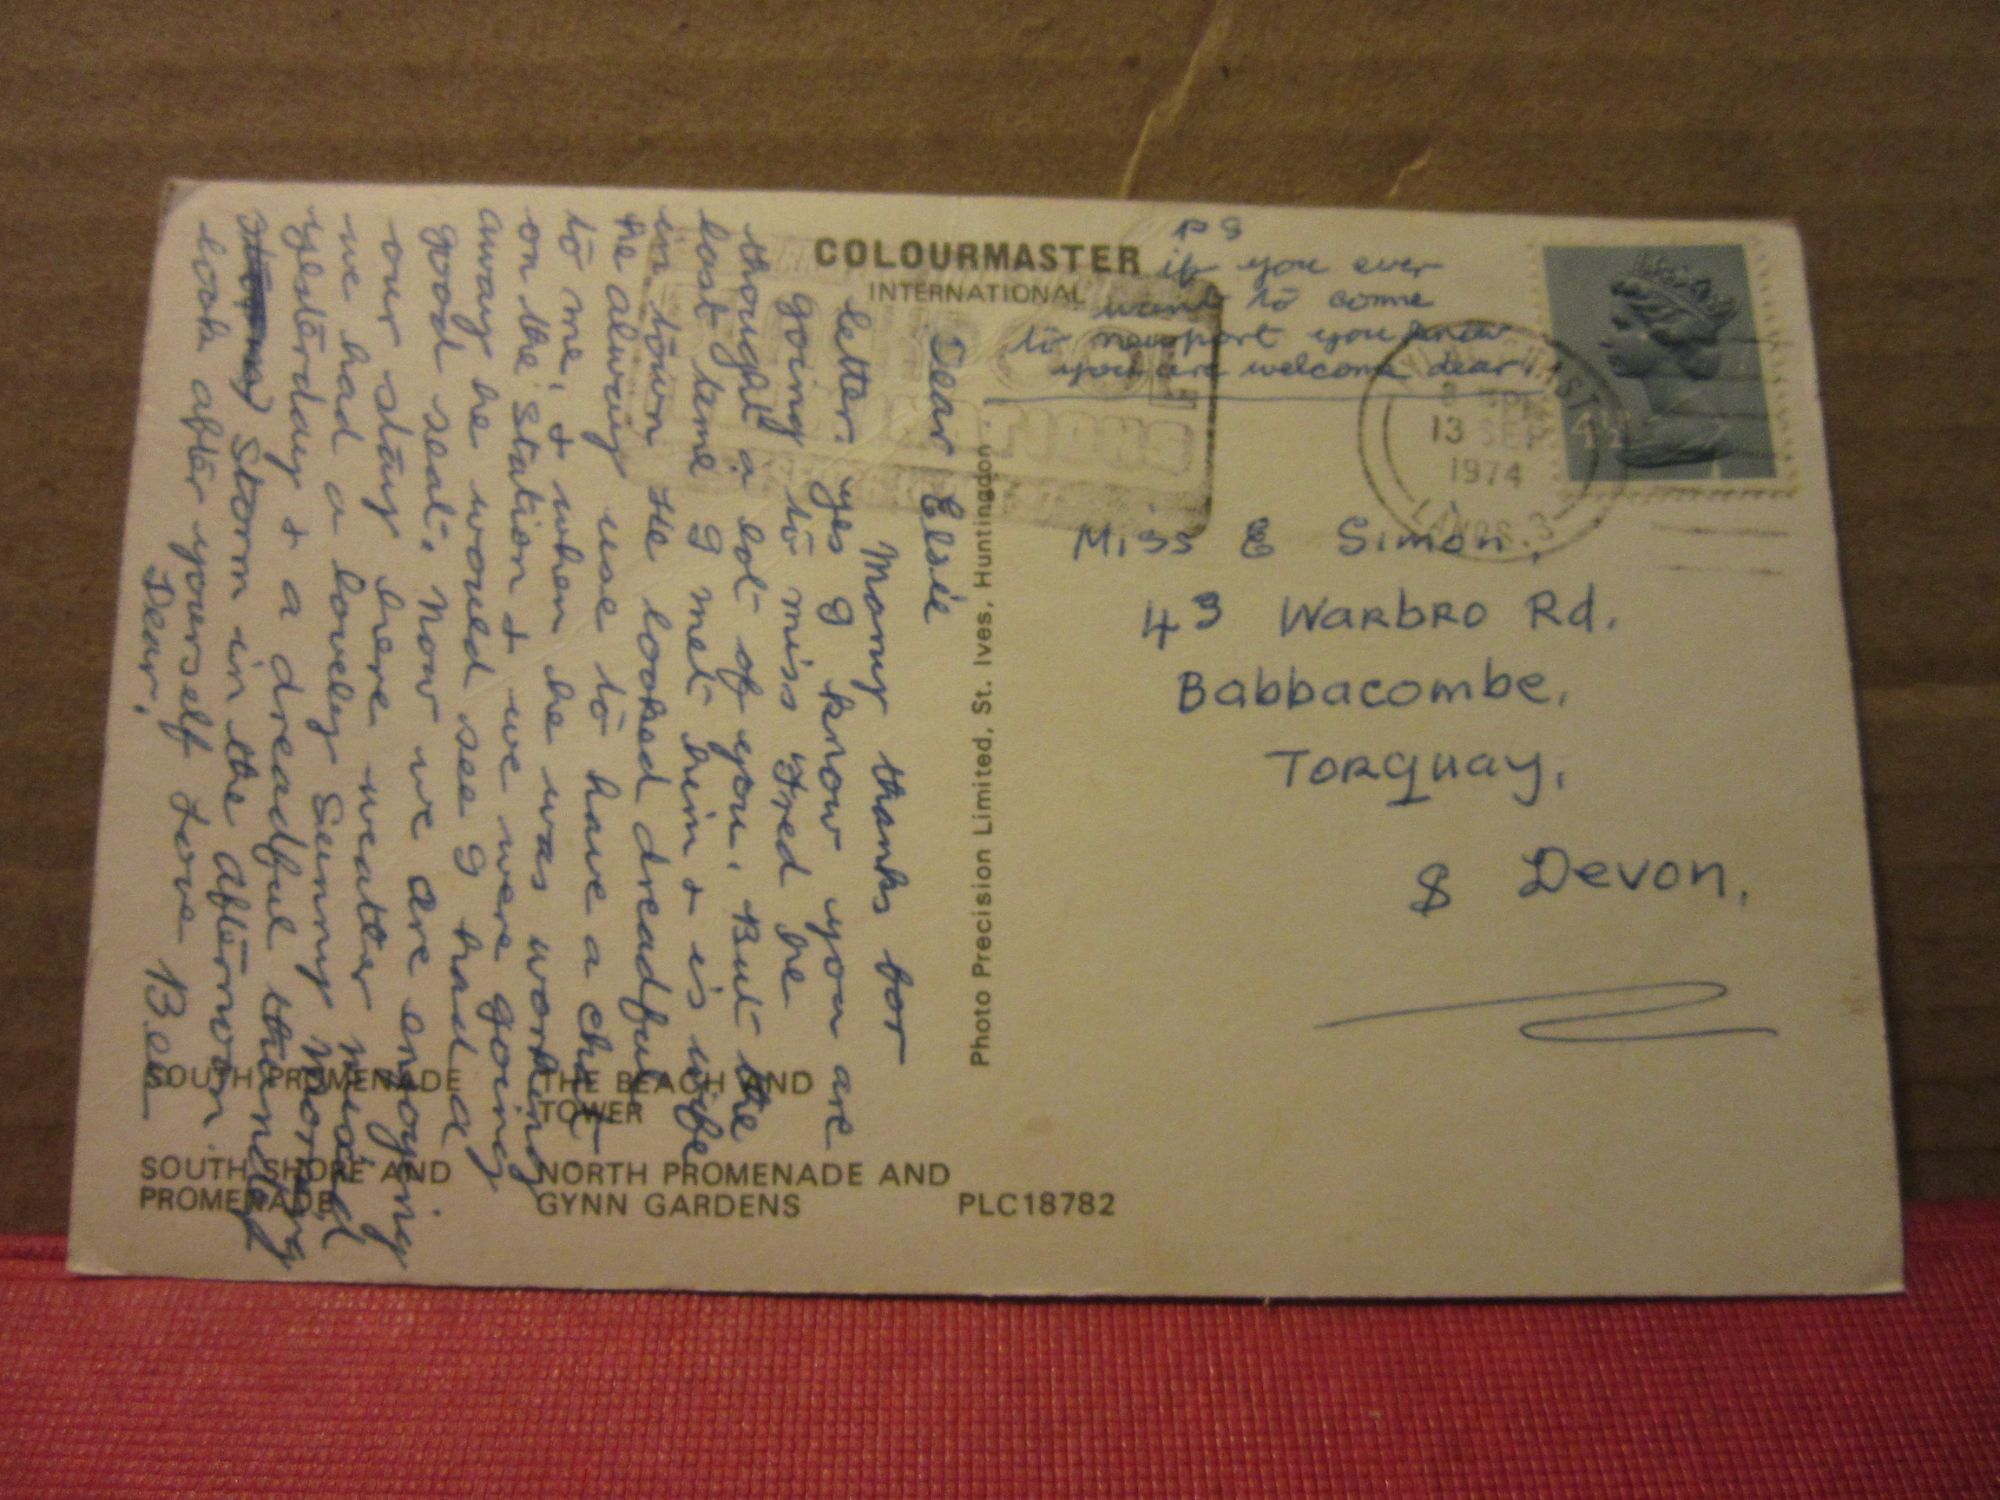 COLOURMASTER
INTERNATIONAL
PS
if you ever
want to come
to newport you know
you are welcome dear
13 SEP
1974
LANCS. 3
4½
Miss E Simon,
43 Warbro Rd.
Babbacombe,
Torquay,
S Devon,
Dear Elsie
Many thanks for
letter. yes I know you are
going to miss Fred he
thought a lot of you. But the
last time I met him & is wife
in town He looked dreadful
he always use to have a chat
to me, & when he was working
on the station & we were going
away he would see I had a
good seat. Now we are enjoying
our stay here weather mixed
we had a lovely Sunny morning
yesterday & a dreadful thundery
Storm in the afternoon.
look after yourself Love Bee
Dear.
Photo Precision Limited, St. Ives, Huntingdon
SOUTH PROMENADE THE BEACH AND
TOWER
SOUTH SHORE AND NORTH PROMENADE AND
PROMENADE GYNN GARDENS PLC18782